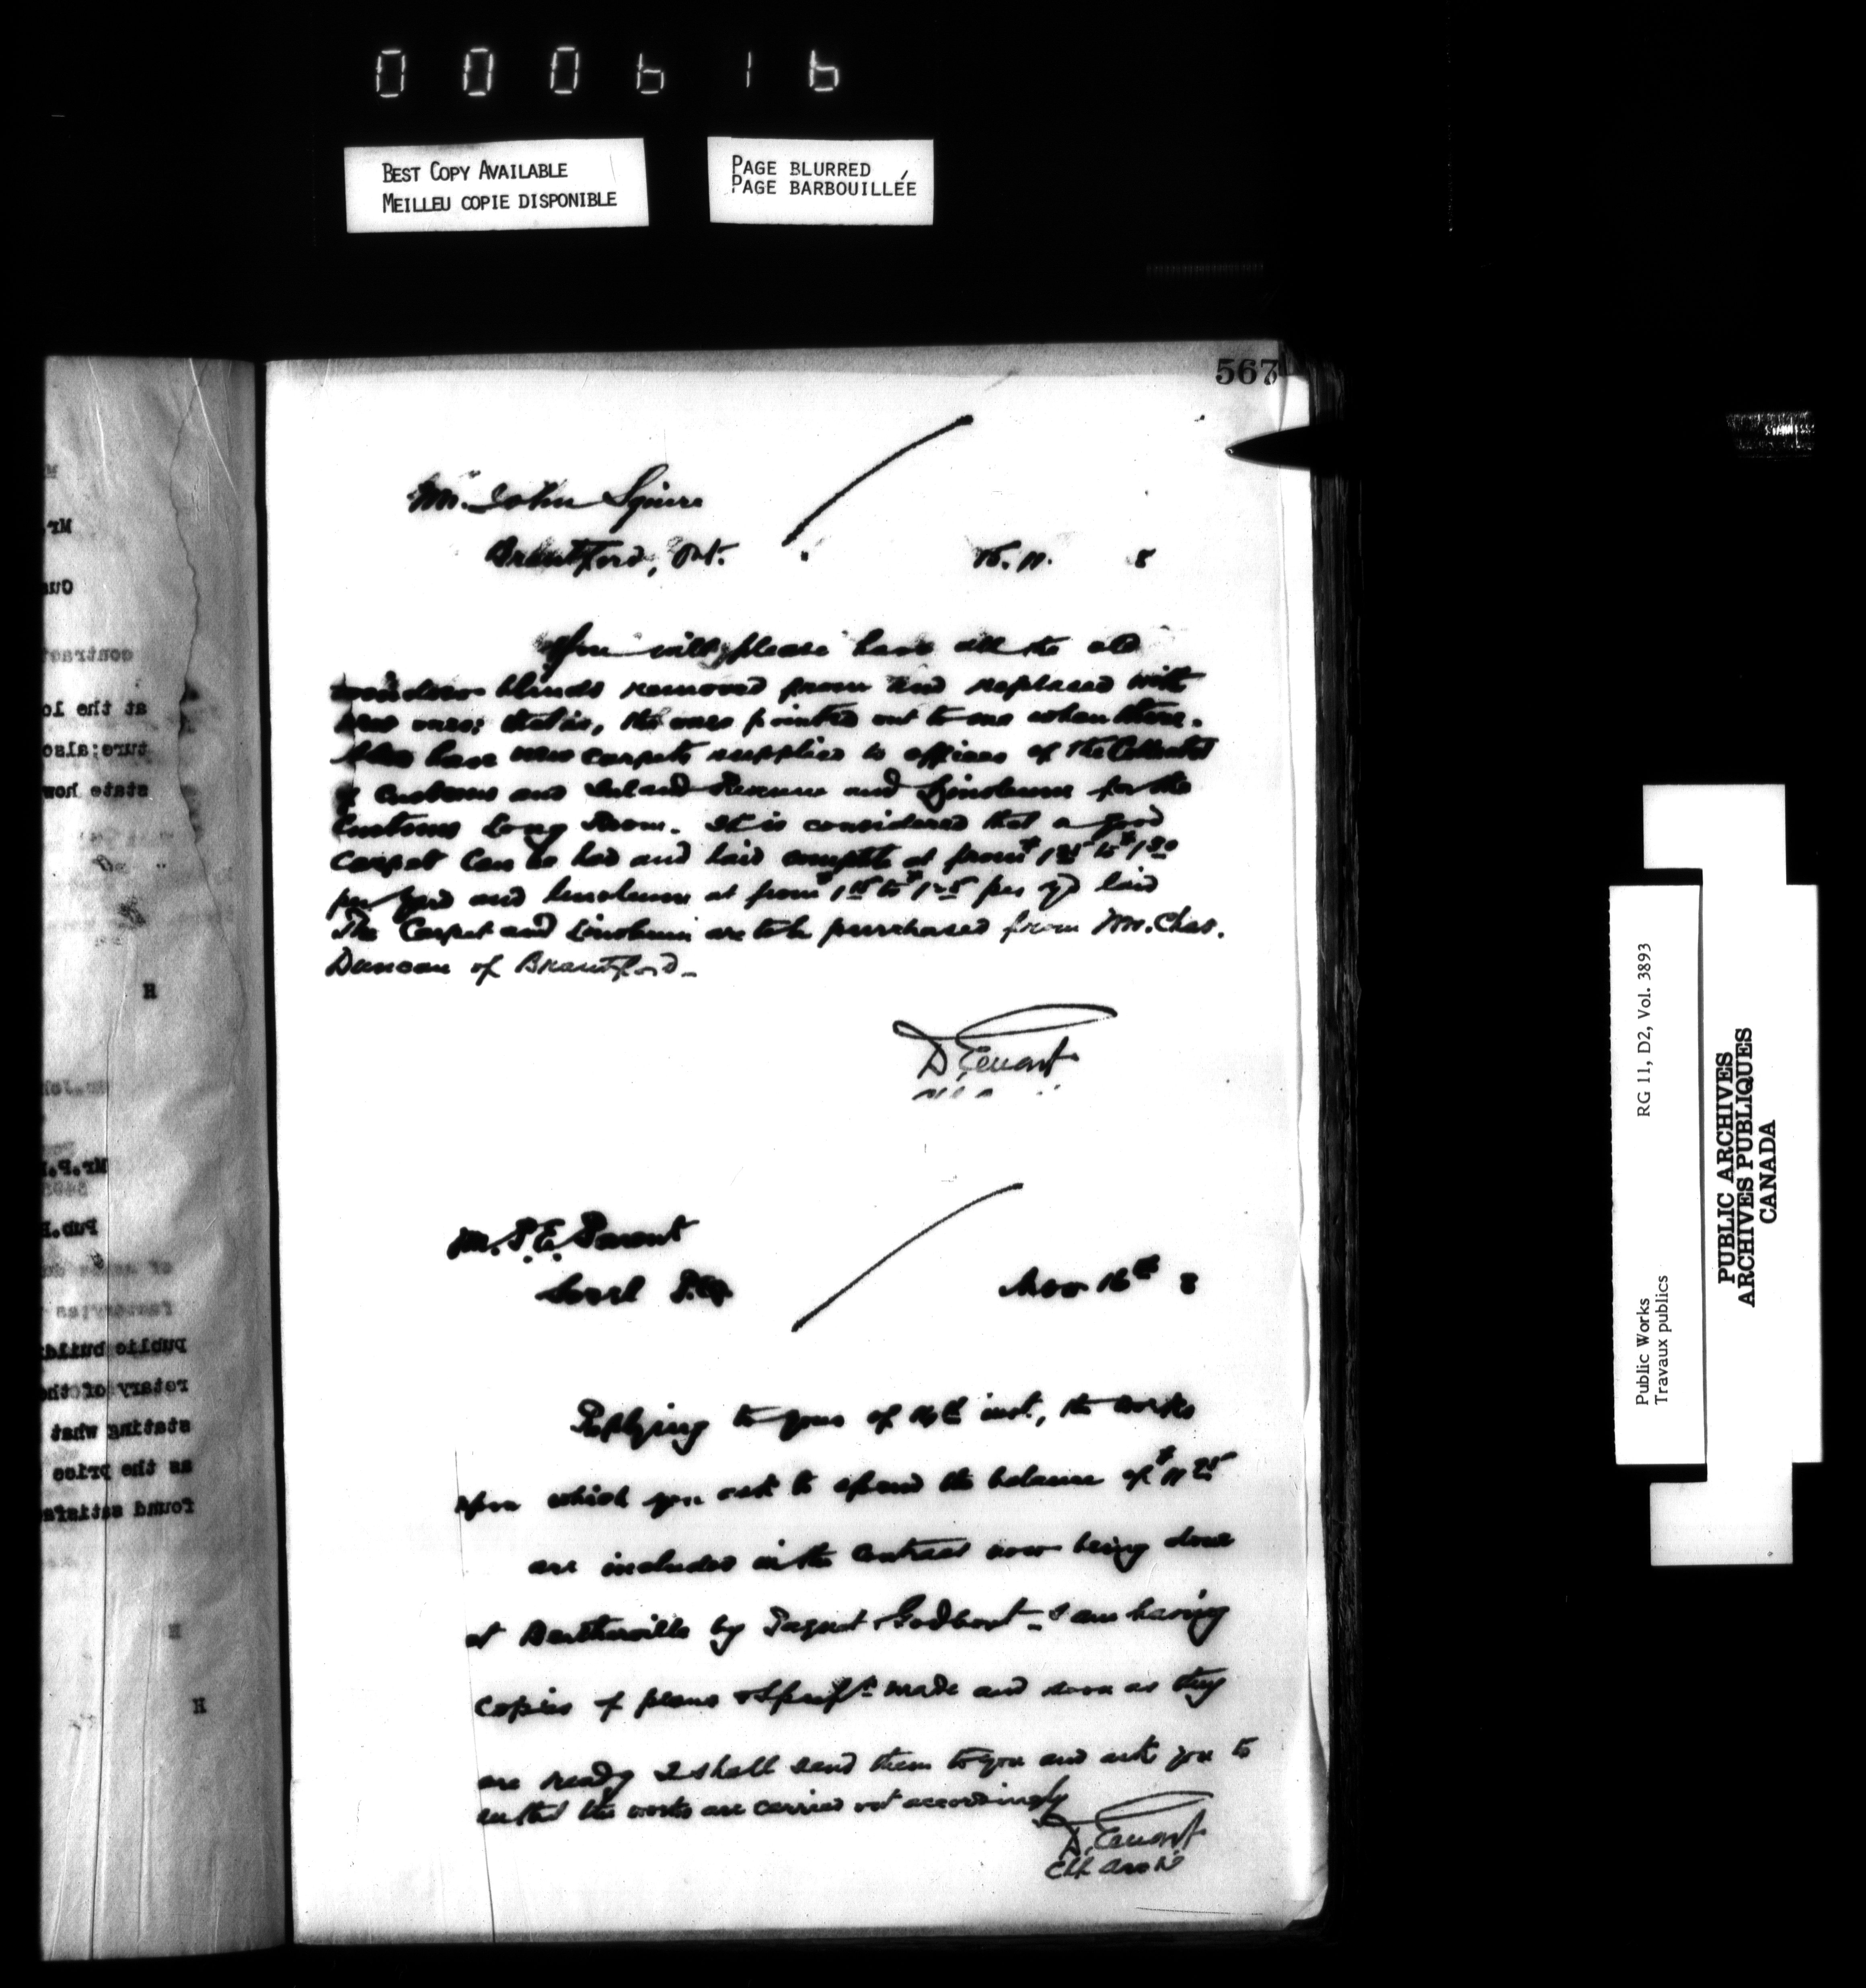 000616
BEST COPY AVAILABLE
MEILLEU COPIE DISPONIBLE
PAGE BLURRED
PAGE BARBOUILLÉE
567
Mr. John Squire
Brantford, Ont.
16.11. 8
You will please have all the old
window blinds removed from and replaced with
new ones; that is, the ones pointed out to me when there.
Also have new carpets supplied to offices of the Collector
of Customs and Inland Revenue and Linoleum for the
Customs Long Room. It is considered that a good
carpet can be had and laid complete at from
per yard and linoleum at from per yd laid
The Carpet and Linoleum are to be purchased from Mr. Chas.
Duncan of Brantford.
D. Ewart
Mr. P. E. Parent
Sorel P.Q.
Nov 16th 8
Replying to yours of inst., the works
upon which you ask to spend the balance of
are included in the contract now being done
at Berthierville by Paquet & Godbout - I am having
copies of plans & made and soon as they
are ready I shall send them to you and ask you to
see that the works are carried out accordingly
D. Ewart
Chf. Archt
Mr.
contract
at the lo
ture; also
state how
H
Mr. P.
Pub. B
public build
retary of the
stating what
as the price
found satisfa
H
H
Public Works RG 11, D2, Vol. 3893
Travaux publics
PUBLIC ARCHIVES
ARCHIVES PUBLIQUES
CANADA